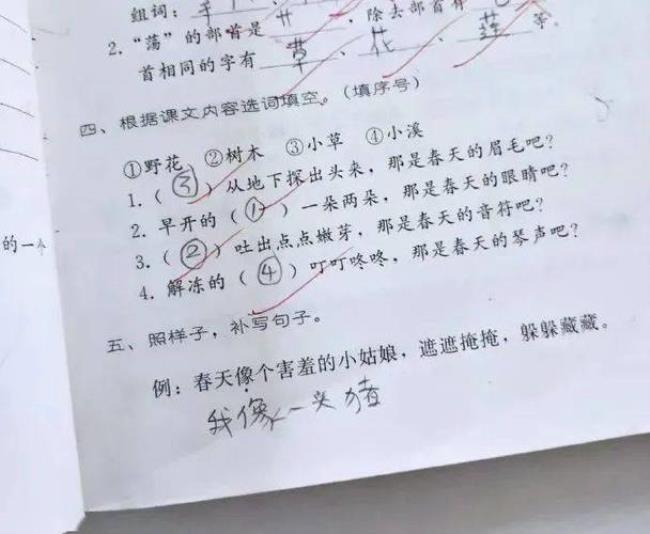 组词：
2. “荡”的部首是 艹 ，除去部首有
首相同的字有 草 、 花 、 莲 等。
四、根据课文内容选词填空。（填序号）
①野花 ②树木 ③小草 ④小溪
1.（ ③ ）从地下探出头来，那是春天的眉毛吧？
2. 早开的（ ① ）一朵两朵，那是春天的眼睛吧？
3.（ ② ）吐出点点嫩芽，那是春天的音符吧？
4. 解冻的（ ④ ）叮叮咚咚，那是春天的琴声吧？
五、照样子，补写句子。
例：春天像个害羞的小姑娘，遮遮掩掩，躲躲藏藏。
我像一头猪
的一个